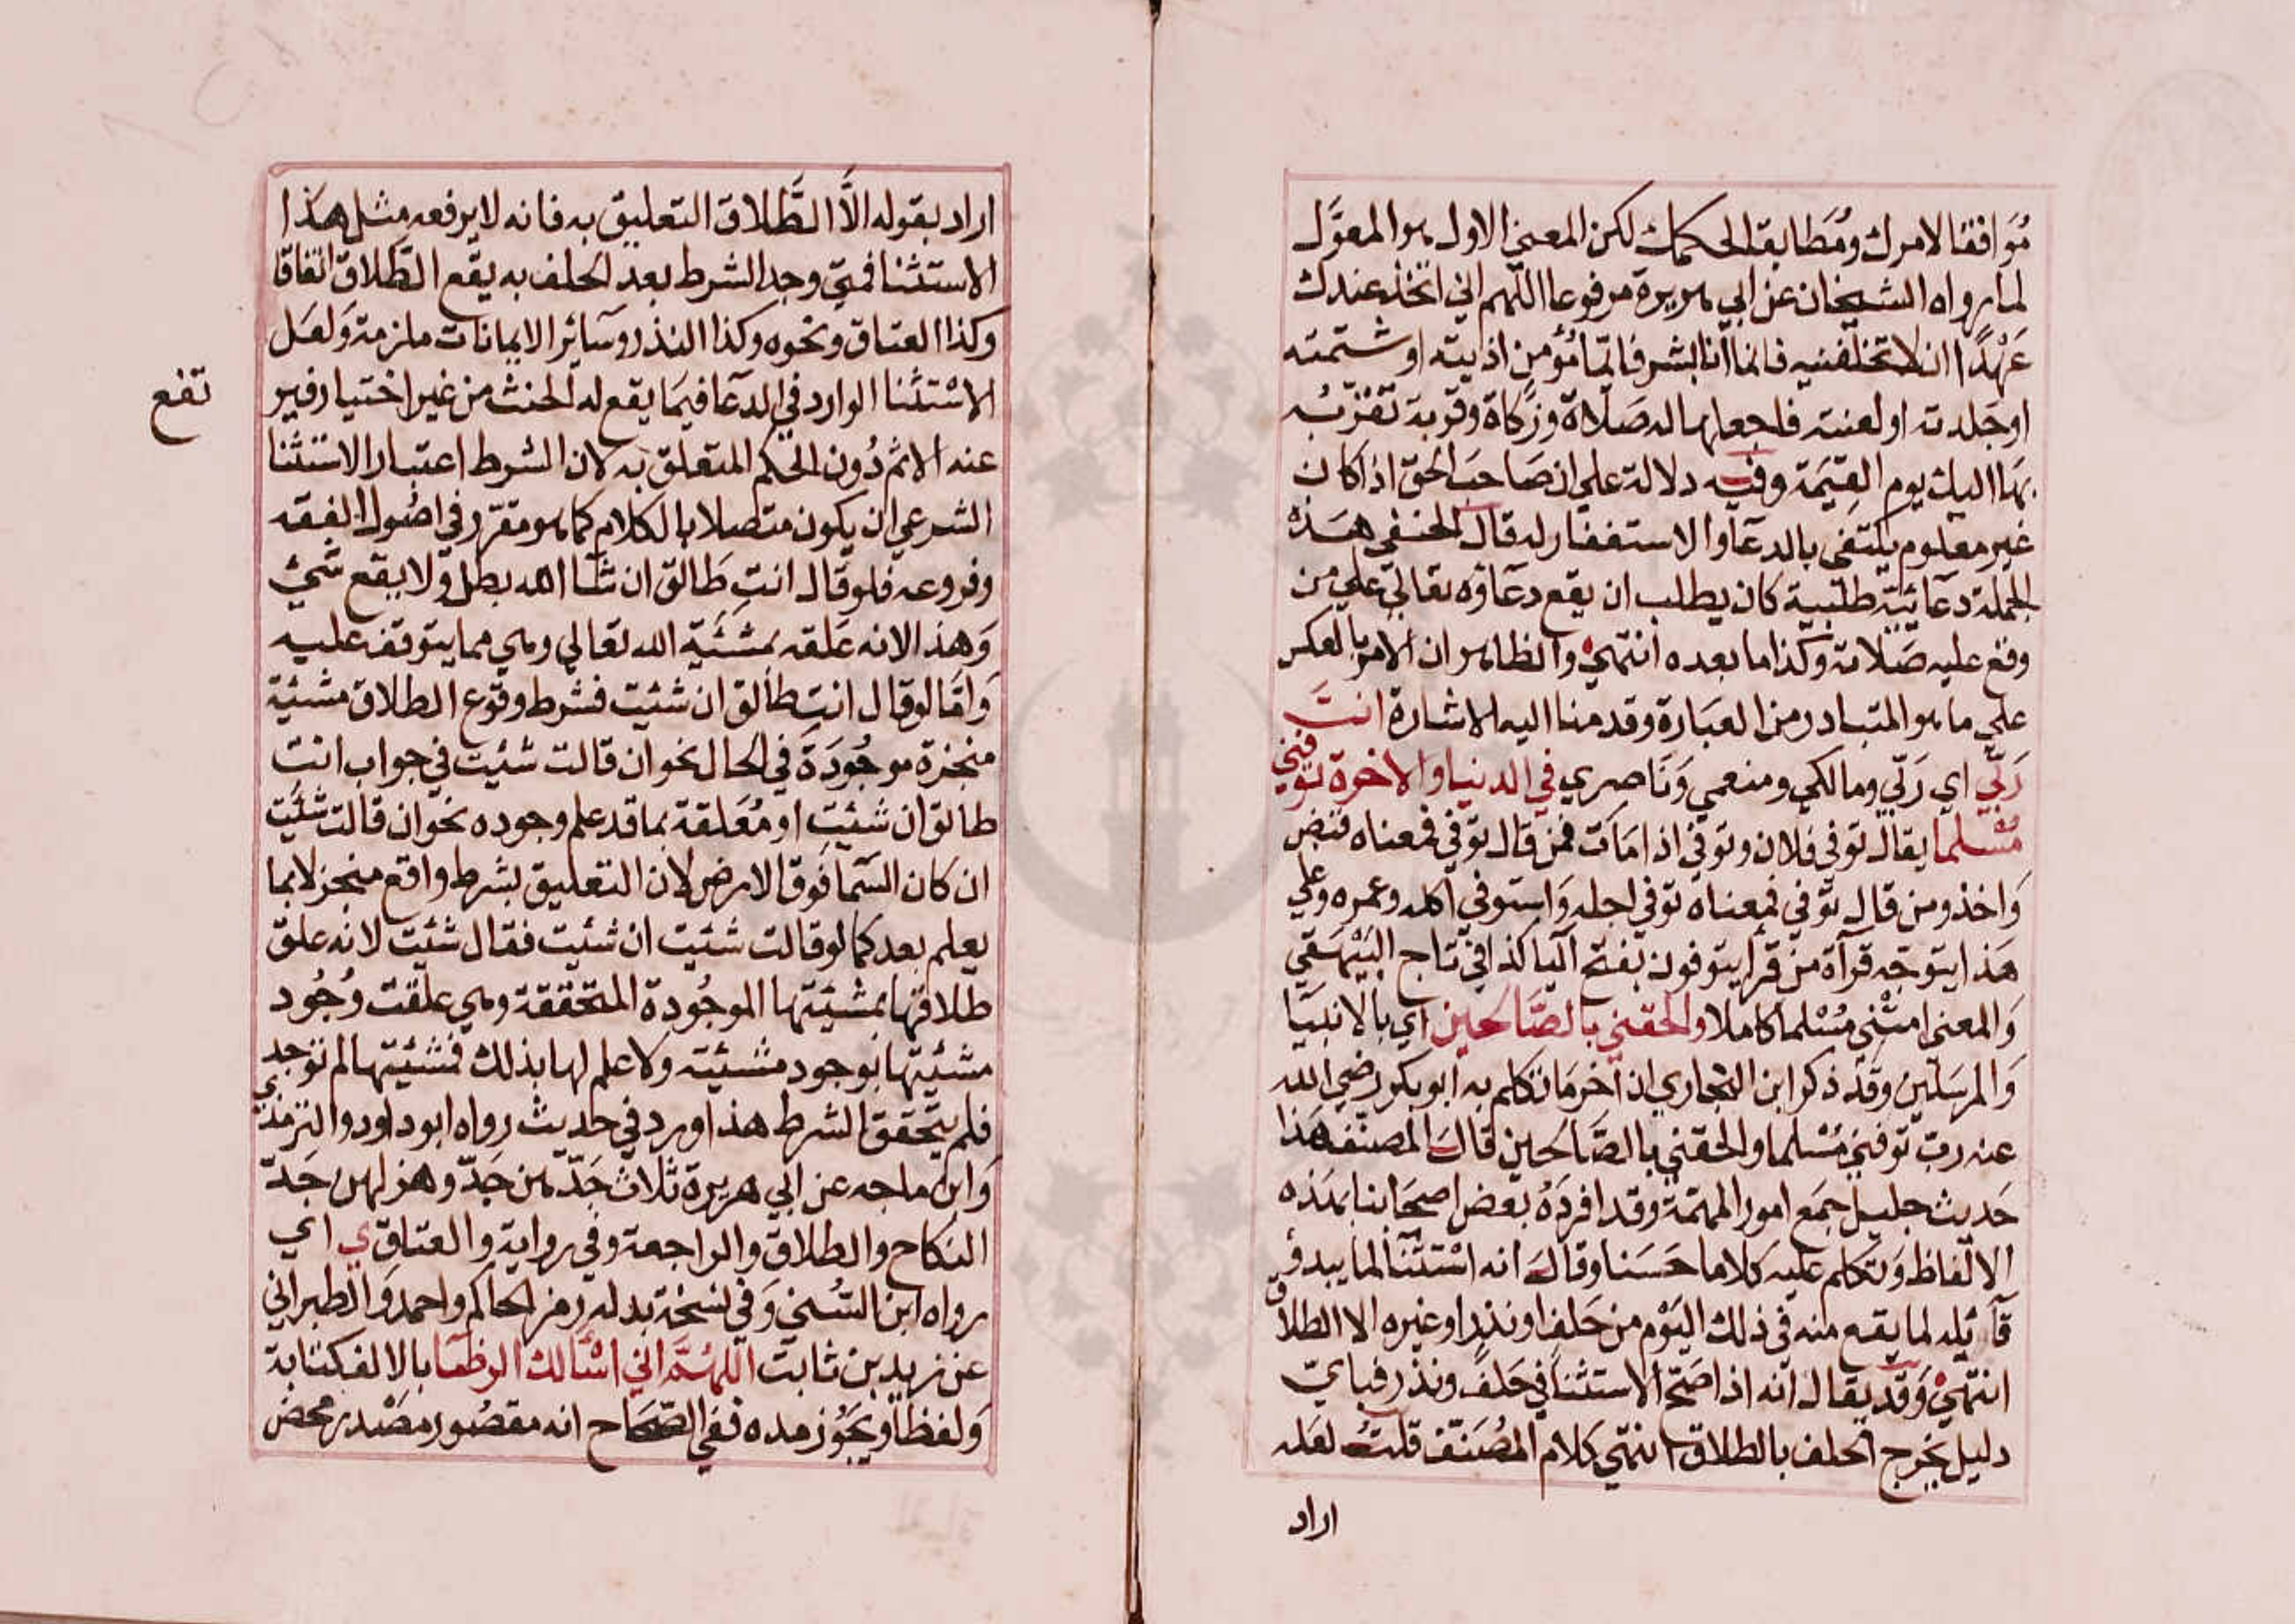 مُوَافقا لامرك ومُطَابقا لحكمك لكن المعنى الاول هو المعوَّل
لما رواه الشيخان عن ابي هريرة مرفوعا اللهم اني اتخذ عندك
عَهْدًا ان لا تخلفنيه فانما انا بشر فايما مُؤمن اذايته او شتمته
او جلدته او لعنته فاجعلها له صَلاة وزكاة وقربة تقرّبُه
بها اليك يوم القيمة وفيه دلالة على ان صَاحب الحق اذا كان
غير معلوم يكتفى بالدعآ والاستغفار له قال الحنفي هذه
الجملة دعائية طلبية كان يطلب ان يقع دعاؤه تعالى على من
وقع عليه صَلاته وكذا ما بعده انتهى والظاهر ان الامر بالعكس
على ما هو المتبادر من العبَارة وقدمنا اليه الاشارة انت
رَبّي اي رَبّي ومالكي ومنعمي وَنَاصري في الدنيا والاخرة توفني
مُسْلما يقال توفى فلان وتوفي اذا مَات فمن قال توفي فمعناه قبض
وَاخذ ومن قال توفى فمعناه توفى اجله وَاستوفى اكله وعمره وعلى
هَذا يتوجه قرآة من قرأ يتوفون بفتح اليا كذا في تاج البَيْهَقي
وَالمعنى امتْني مُسْلما كاملا والحقني بالصَّالحين اي بالانبيَا
وَالمرسَلين وقد ذكر ابن النجاري ان آخر مَا تكلم به ابو بكر رضي الله
عنه رب توفني مسْلما والحقني بالصَّالحين قالَ المصنّف هَذا
حَديث جليل جمَع امور المهمّة وقد افردَهُ بعض اصحَابنا بهَذه
الالفاظ وَتكلم عليه كلاما حَسَنا وقالَ انه اسْتثنآ لما يبدو
قآئله لما يقع منه في ذلك اليَوْم من حَلف او نذر او غيره الا الطلاق
انتهى وَقد يقال انه اذا صَحّ الاستثنا في حَلف ونذر فباي
دليل يخرج الحلف بالطلاق انتهى كلام المُصَنّف قلتُ لعَله
اراد
اراد بقوله الَّا الطَّلاق التعليق به فانه لا يرفعه مثل هذا
الاستثنا فمتى وجد الشرط بعد الحلف به يقع الطَّلاق اتفاقا
وكذا العتاق ونحوه وكذا النذر وسَآئر الايمانات ملزمة وَلعَل
الاسْتثنا الوارد في الدعآ فيمَا يقع له الحنث من غير اختيار فير
تفع
عنه الاثم دُون الحكم المتعلق به لان الشرط اعتبار الاستثنا
الشرعي ان يكون متصلا بالكلام كما هو مقرّر في اصُول الفقه
وفروعه فلو قال انتِ طَالق ان شآ الله بطل ولا يقع شَيْء
وَهذا لانه عَلقه بمشئية الله تعالى وهي مما يتوقف عليه
وَامّا لو قال انتِ طالق ان شئيت فشرط وقوع الطلاق مشئية
منجزة موجُودَة في الحال نحو ان قالت شئيت في جواب انت
طالق ان شئيت او مُعَلقة بما قد علم وجوده نحو ان قالت شئيت
ان كان السَّمَا فَوق الارض لان التعليق بشرط واقع منجز لا بما
يعلم بعد كما لو قالت شئيت ان شئيت فقال شئيت لانه علق
طلاقها بمشيئتها الموجُودة المتحققة وهي علقت وُجُود
مشئيتها بوجود مشيئته ولا علم لها بذلك فمشئيتها لم توجد
فلم يتحقق الشرط هذا وورد في حديث رواه ابو داود والترمذي
وَابن ماجه عن ابي هريرة ثلاث جَدّهن جَدّ وهزلهن جَدّ
النكاح والطلاق والراجعة وفي رواية والعتاق ي اي
رواه ابن السُّني وَفي نسخة بدله رمز الحاكم واحمد وَالطبراني
عن زيد بن ثابت اللهُمَّ اني اسْألك الرضا بالالف كتابة
وَلفظا ويَجُوز مده ففي الصَّحَاح انه مقصُور مصْدر محض